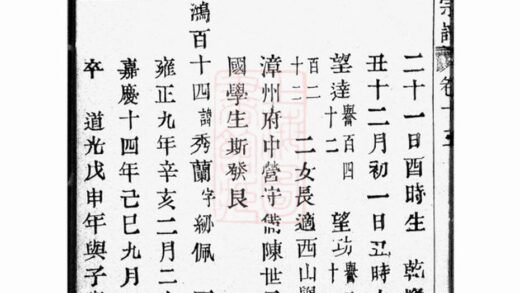 宗譜 卷十
二十一日酉時生 乾隆
丑十二月初一日丑時
望達譽百四十二 望功譽
百二十二 二女長適西山
漳州府中營守備陳世
國學生斯發艮
鴻百十四諱秀蘭字紉佩
雍正九年辛亥二月二
嘉慶十四年己巳九月
卒 道光戊申年與子